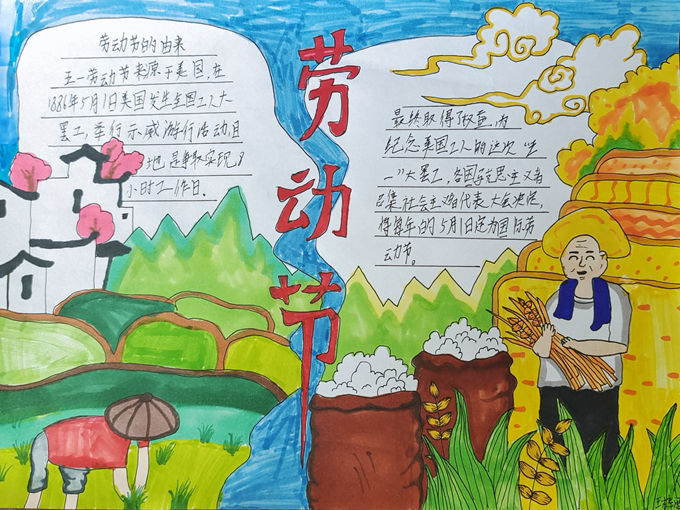 劳动节的由来
五一劳动节来源于美国,在
1886年5月1日美国发生全国工人大
罢工,举行示威游行活动,目
地是争取实现8
小时工作日.
劳动节
最终取得了权益,为
纪念美国工人的这次"五
一"大罢工,各国
召集社会主义者代表大会决定,
将每年的5月1日定为国际劳
动节。